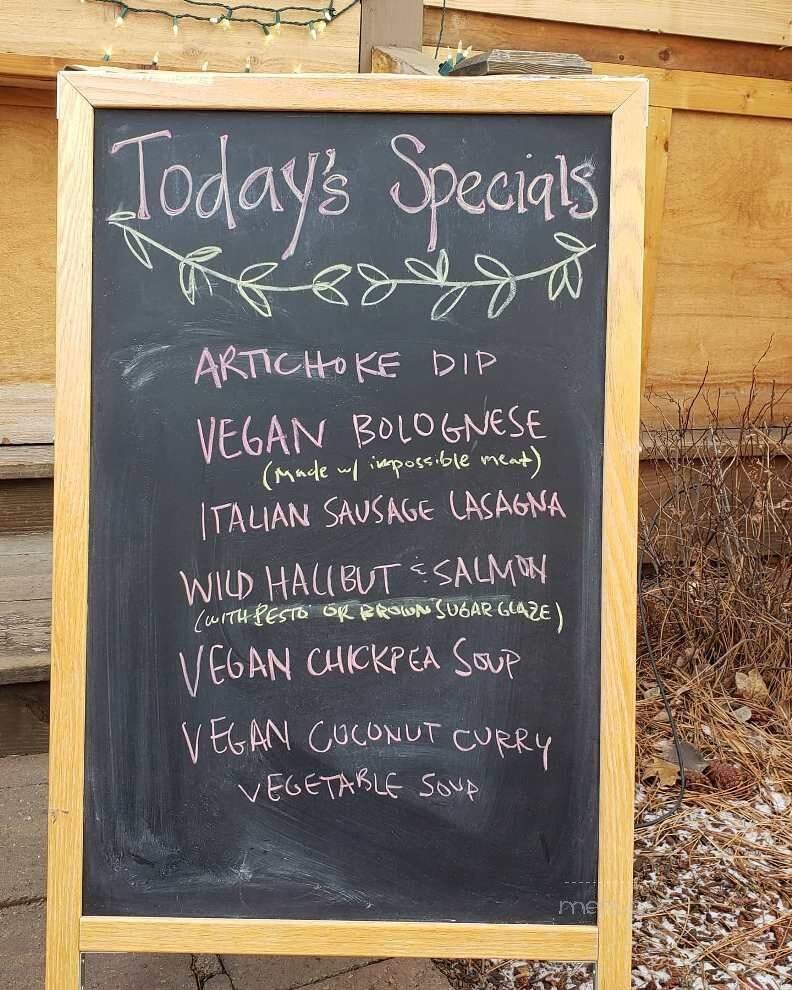 Today's Specials
ARTICHOKE DIP
VEGAN BOLOGNESE
(Made w/ impossible meat)
ITALIAN SAUSAGE LASAGNA
WILD HALIBUT & SALMON
(WITH PESTO OR BROWN SUGAR GLAZE)
VEGAN CHICKPEA SOUP
VEGAN COCONUT CURRY
VEGETABLE SOUP